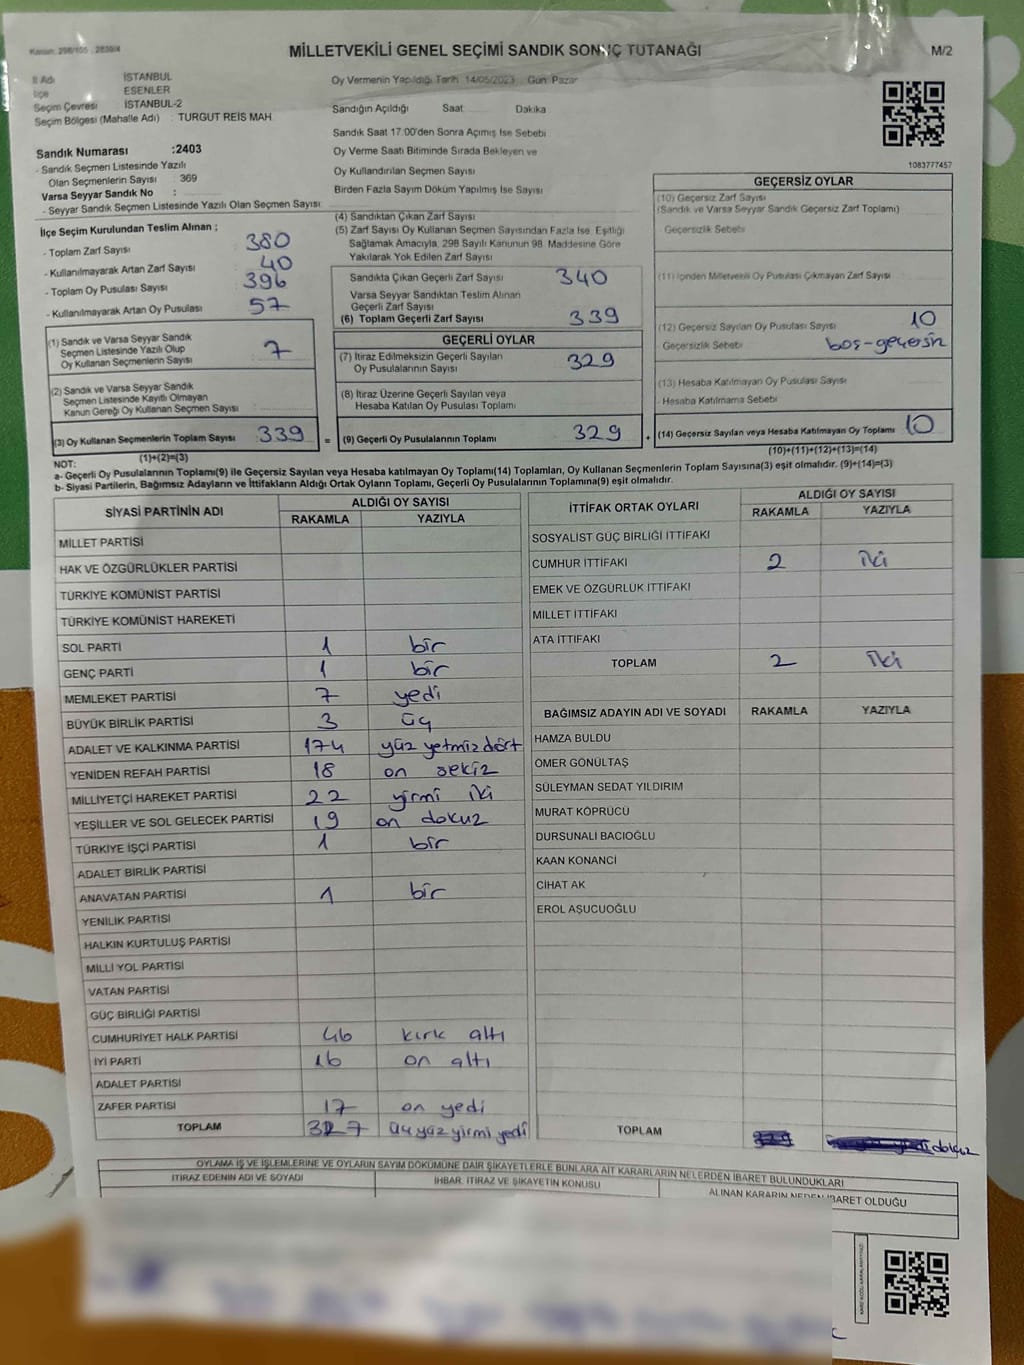 Kanun: 298/105 , 2839/4
MİLLETVEKİLİ GENEL SEÇİMİ SANDIK SONUÇ TUTANAĞI
M/2
İl Adı İSTANBUL
İlçe ESENLER
Seçim Çevresi İSTANBUL-2
Seçim Bölgesi (Mahalle Adı) : TURGUT REİS MAH
Sandık Numarası :2403
- Sandık Seçmen Listesinde Yazılı
Olan Seçmenlerin Sayısı : 369
Varsa Seyyar Sandık No :
- Seyyar Sandık Seçmen Listesinde Yazılı Olan Seçmen Sayısı
Oy Vermenin Yapıldığı Tarih 14/05/2023 Gün: Pazar
Sandığın Açıldığı Saat Dakika
Sandık Saat 17:00'den Sonra Açımış İse Sebebi
Oy Verme Saati Bitiminde Sırada Bekleyen ve
Oy Kullandırılan Seçmen Sayısı
Birden Fazla Sayım Döküm Yapılmış İse Sayısı
1083777457
İlçe Seçim Kurulundan Teslim Alınan ;
- Toplam Zarf Sayısı 380
- Kullanılmayarak Artan Zarf Sayısı 40
- Toplam Oy Pusulası Sayısı 396
- Kullanılmayarak Artan Oy Pusulası 57
(1) Sandık ve Varsa Seyyar Sandık
Seçmen Listesinde Yazılı Olup
Oy Kullanan Seçmenlerin Sayısı 7
(2) Sandık ve Varsa Seyyar Sandık
Seçmen Listesinde Kayıtlı Olmayan
Kanun Gereği Oy Kullanan Seçmen Sayısı
(3) Oy Kullanan Seçmenlerin Toplam Sayısı 339 =
(1)+(2)=(3)
(4) Sandıktan Çıkan Zarf Sayısı
(5) Zarf Sayısı Oy Kullanan Seçmen Sayısından Fazla İse, Eşitliği
Sağlamak Amacıyla, 298 Sayılı Kanunun 98. Maddesine Göre
Yakılarak Yok Edilen Zarf Sayısı
Sandıkta Çıkan Geçerli Zarf Sayısı 340
Varsa Seyyar Sandıktan Teslim Alınan
Geçerli Zarf Sayısı
(6) Toplam Geçerli Zarf Sayısı 339
GEÇERLİ OYLAR
(7) İtiraz Edilmeksizin Geçerli Sayılan
Oy Pusulalarının Sayısı 329
(8) İtiraz Üzerine Geçerli Sayılan veya
Hesaba Katılan Oy Pusulası Toplamı
(9) Geçerli Oy Pusulalarının Toplamı 329 +
GEÇERSİZ OYLAR
(10) Geçersiz Zarf Sayısı
(Sandık ve Varsa Seyyar Sandık Geçersiz Zarf Toplamı)
Geçersizlik Sebebi
(11) İçinden Milletvekili Oy Pusulası Çıkmayan Zarf Sayısı
(12) Geçersiz Sayılan Oy Pusulası Sayısı 10
Geçersizlik Sebebi boş-geçersiz
(13) Hesaba Katılmayan Oy Pusulası Sayısı
- Hesaba Katılmama Sebebi
(14) Geçersiz Sayılan veya Hesaba Katılmayan Oy Toplamı 10
(10)+(11)+(12)+(13)=(14)
NOT:
a- Geçerli Oy Pusulalarının Toplamı(9) ile Geçersiz Sayılan veya Hesaba katılmayan Oy Toplamı(14) Toplamları, Oy Kullanan Seçmenlerin Toplam Sayısına(3) eşit olmalıdır. (9)+(14)=(3)
b- Siyasi Partilerin, Bağımsız Adayların ve İttifakların Aldığı Ortak Oyların Toplamı, Geçerli Oy Pusulalarının Toplamına(9) eşit olmalıdır.
SİYASİ PARTİNİN ADI ALDIĞI OY SAYISI
RAKAMLA YAZIYLA
MİLLET PARTİSİ
HAK VE ÖZGÜRLÜKLER PARTİSİ
TÜRKİYE KOMÜNİST PARTİSİ
TÜRKİYE KOMÜNİST HAREKETİ
SOL PARTİ 1 bir
GENÇ PARTİ 1 bir
MEMLEKET PARTİSİ 7 yedi
BÜYÜK BİRLİK PARTİSİ 3 üç
ADALET VE KALKINMA PARTİSİ 174 yüz yetmiş dört
YENİDEN REFAH PARTİSİ 18 on sekiz
MİLLİYETÇİ HAREKET PARTİSİ 22 yirmi iki
YEŞİLLER VE SOL GELECEK PARTİSİ 19 on dokuz
TÜRKİYE İŞÇİ PARTİSİ 1 bir
ADALET BİRLİK PARTİSİ
ANAVATAN PARTİSİ 1 bir
YENİLİK PARTİSİ
HALKIN KURTULUŞ PARTİSİ
MİLLİ YOL PARTİSİ
VATAN PARTİSİ
GÜÇ BİRLİĞİ PARTİSİ
CUMHURİYET HALK PARTİSİ 46 kırk altı
İYİ PARTİ 16 on altı
ADALET PARTİSİ
ZAFER PARTİSİ 17 on yedi
TOPLAM 327 üçyüz yirmi yedi
İTTİFAK ORTAK OYLARI ALDIĞI OY SAYISI
RAKAMLA YAZIYLA
SOSYALİST GÜÇ BİRLİĞİ İTTİFAKI
CUMHUR İTTİFAKI 2 iki
EMEK VE ÖZGÜRLÜK İTTİFAKI
MİLLET İTTİFAKI
ATA İTTİFAKI
TOPLAM 2 iki
BAĞIMSIZ ADAYIN ADI VE SOYADI RAKAMLA YAZIYLA
HAMZA BULDU
ÖMER GÖNÜLTAŞ
SÜLEYMAN SEDAT YILDIRIM
MURAT KÖPRÜCÜ
DURSUNALİ BACIOĞLU
KAAN KONANCİ
CİHAT AK
EROL AŞUCUOĞLU
TOPLAM dokuz
OYLAMA İŞ VE İŞLEMLERİNE VE OYLARIN SAYIM DÖKÜMÜNE DAİR ŞİKAYETLERLE BUNLARA AİT KARARLARIN NELERDEN İBARET BULUNDUKLARI
İTİRAZ EDENİN ADI VE SOYADI İHBAR, İTİRAZ VE ŞİKAYETİN KONUSU ALINAN KARARIN NEDEN İBARET OLDUĞU